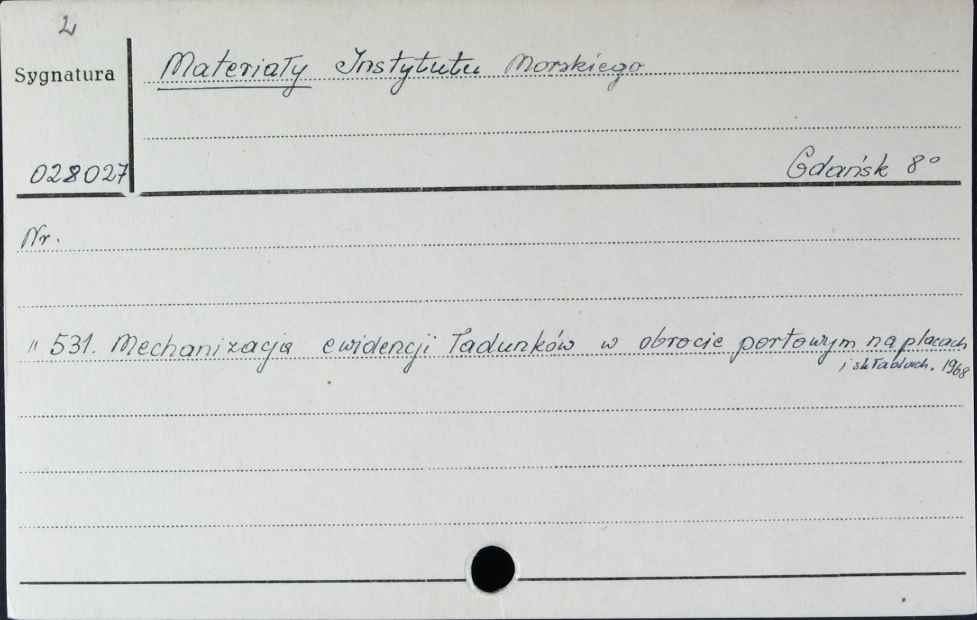 2
Sygnatura
Materiały Instytutu Morskiego
028027
Gdańsk 8°
Nr.
" 531. Mechanizacja ewidencji ładunków w obrocie portowym na placach
i składach. 1968